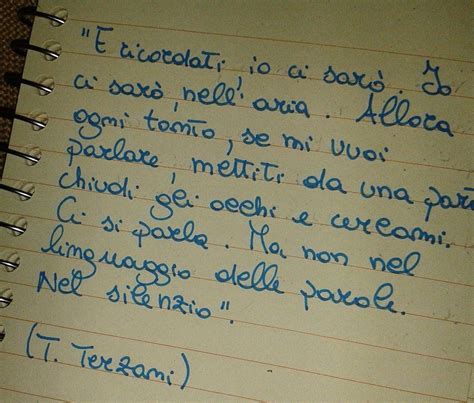 "E ricordati, io ci sarò. Io
ci sarò nell'aria. Allora
ogni tanto, se mi vuoi
parlare, mettiti da una par
chiudi gli occhi e cercami.
Ci si parla. Ma non nel
linguaggio delle parole.
Nel silenzio".
(T. Terzani)